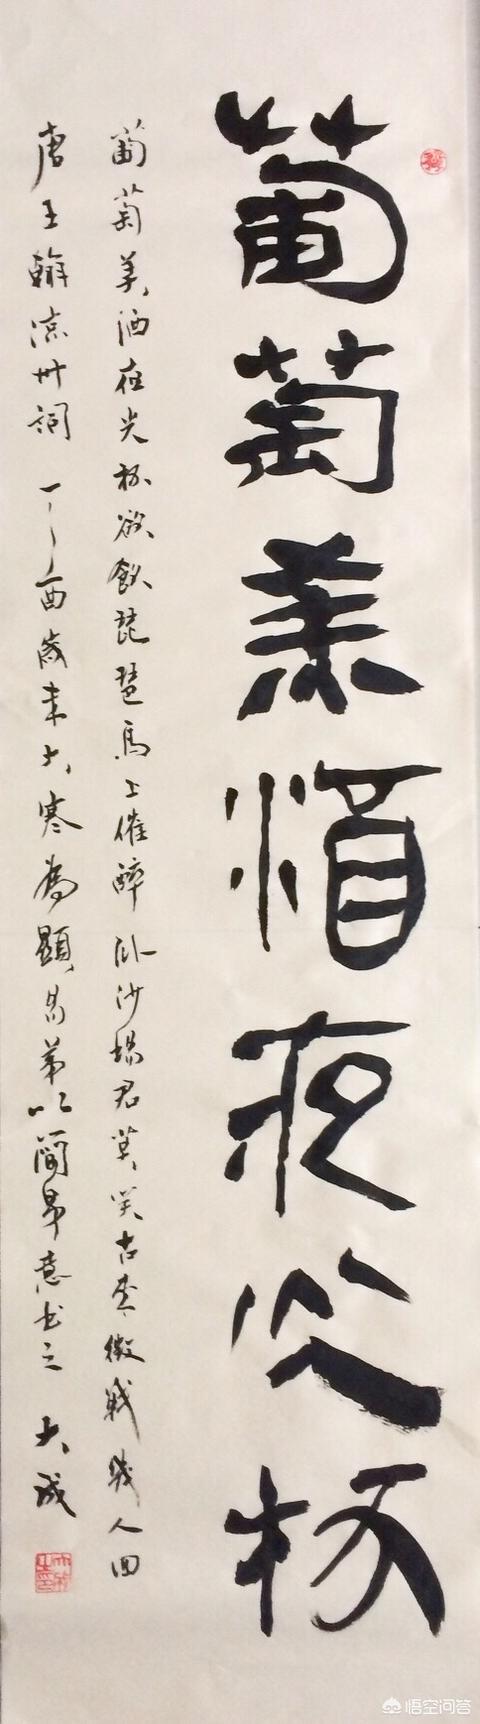 葡萄美酒夜光杯
葡萄美酒夜光杯欲飲琵琶馬上催醉卧沙場君莫笑古來徵戰幾人回
唐王翰涼州詞 丁酉歲末大寒為顯昌弟以簡帛意書之 大成
悟空问答